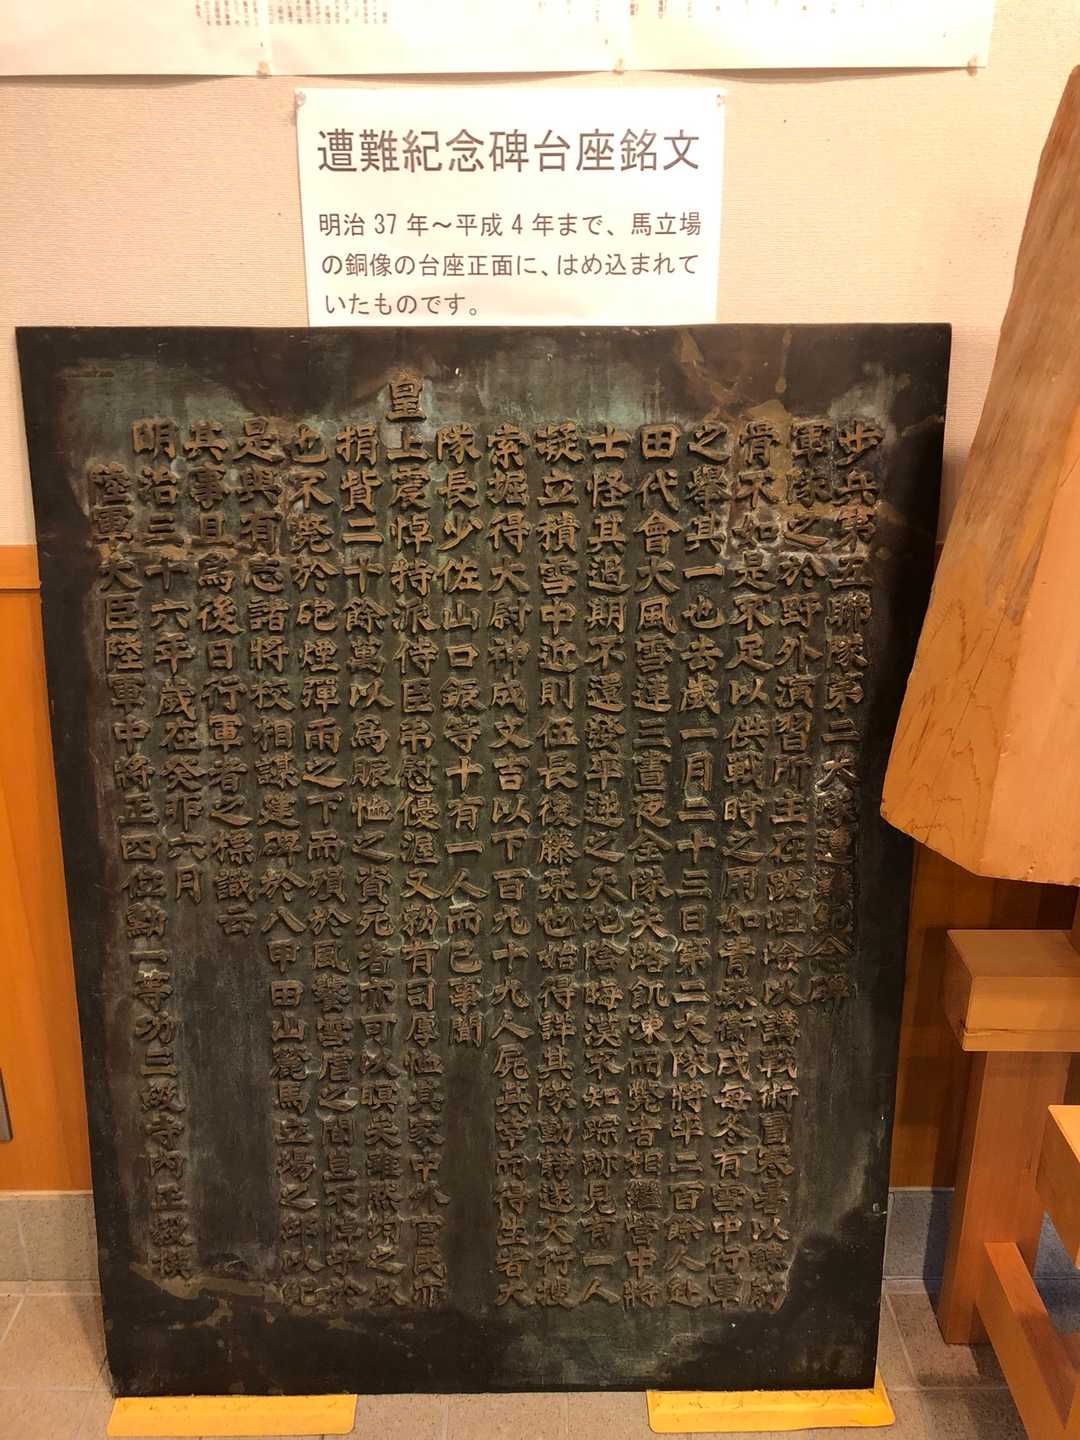 遭難紀念碑台座銘文
明治37年～平成4年まで、馬立場
の銅像の台座正面に、はめ込まれて
いたものです。
歩兵第五聯隊第二大隊遭難紀念碑
軍隊之於野外演習所主在跋咀嶮以講戰術冒寒暑以錬筋
骨不如是不足以供戰時之用如青森衛戍毎冬有雪中行軍
之擧其一也去歳一月二十三日第二大隊將卒二百餘人赴
田代會大風雪連三晝夜全隊失路飢凍而斃者相繼營中將
士怪其過期不還發卒迹之天地陰晦漠不知踪跡見有一人
凝立積雪中近則伍長後藤某也始得詳其隊動靜遂大行搜
索堀得大尉神成文吉以下百九十九人屍其幸而得生者大
隊長少佐山口鋠等十有一人而已事聞
皇上震悼特派侍臣弔慰優渥又勅有司厚恤其家中外官民亦
捐貲二十餘萬以爲賑恤之資死者亦可以瞑矣雖然胡之故
也不斃於砲煙彈雨之下而殞於風饕雪虐之間豈不悼乎於
是與有志諸將校相謀建碑於八甲田山麓馬立場之邱以紀
其事且爲後日行軍者之標識云
明治三十六年歳在癸卯六月
陸軍大臣陸軍中將正四位勳一等功三級寺内正毅撰